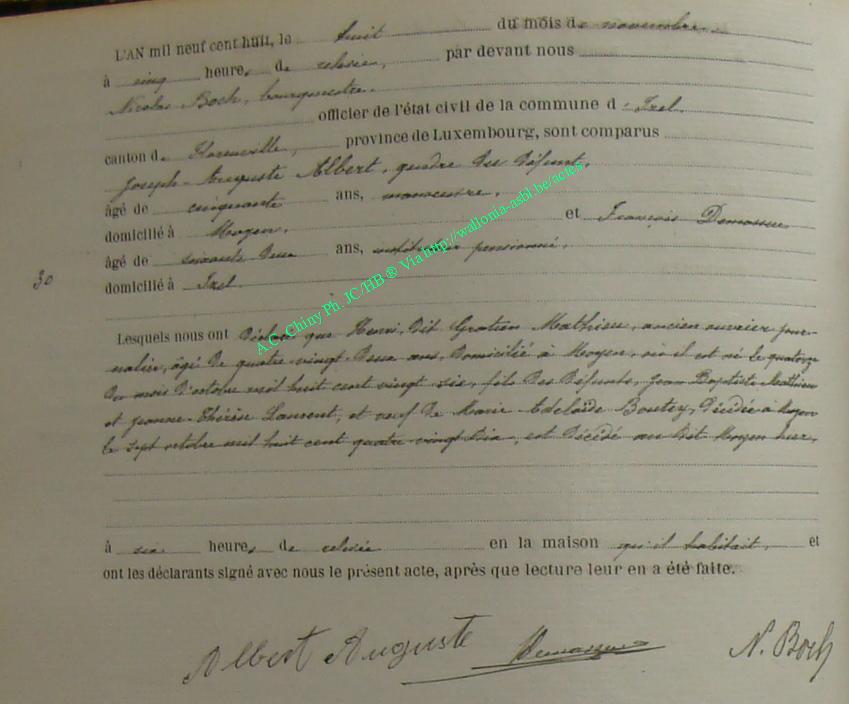 L'AN mil neuf cent huit, le huit du mois de novembre
à cinq heures de relevée, par devant nous
Nicolas Boch, bourgmestre.
officier de l'état civil de la commune d'Izel
canton de Florenville, province de Luxembourg, sont comparus
Joseph-Auguste Albert, gendre du défunt,
âgé de cinquante ans, manoeuvre,
domicilié à Moyen. et François Demasure
âgé de soixante deux ans, instituteur pensionné,
domicilié à Izel.
30
Lesquels nous ont déclaré que Henri, dit Gratien Mathieu, ancien ouvrier jour-
nalier, âgé de quatre vingt deux ans, domicilié à Moyen, où il est né le quatorze
du mois d'octobre mil huit cent vingt six, fils des défunts, Jean Baptiste Mathieu
et Jeanne-Thérèse Laurent, et veuf de Marie Adelaïde Boutez, décédée à Moyen
le sept octobre mil huit cent quatre-vingt dix, est décédé au dit Moyen hier,
à six heures de relevée en la maison qu'il habitait, et
ont les déclarants signé avec nous le présent acte, après que lecture leur en a été faite.
Albert Auguste N. Boch
A.C. Chiny Ph. JC/HB ® Via http://wallonia-asbl.be/actes